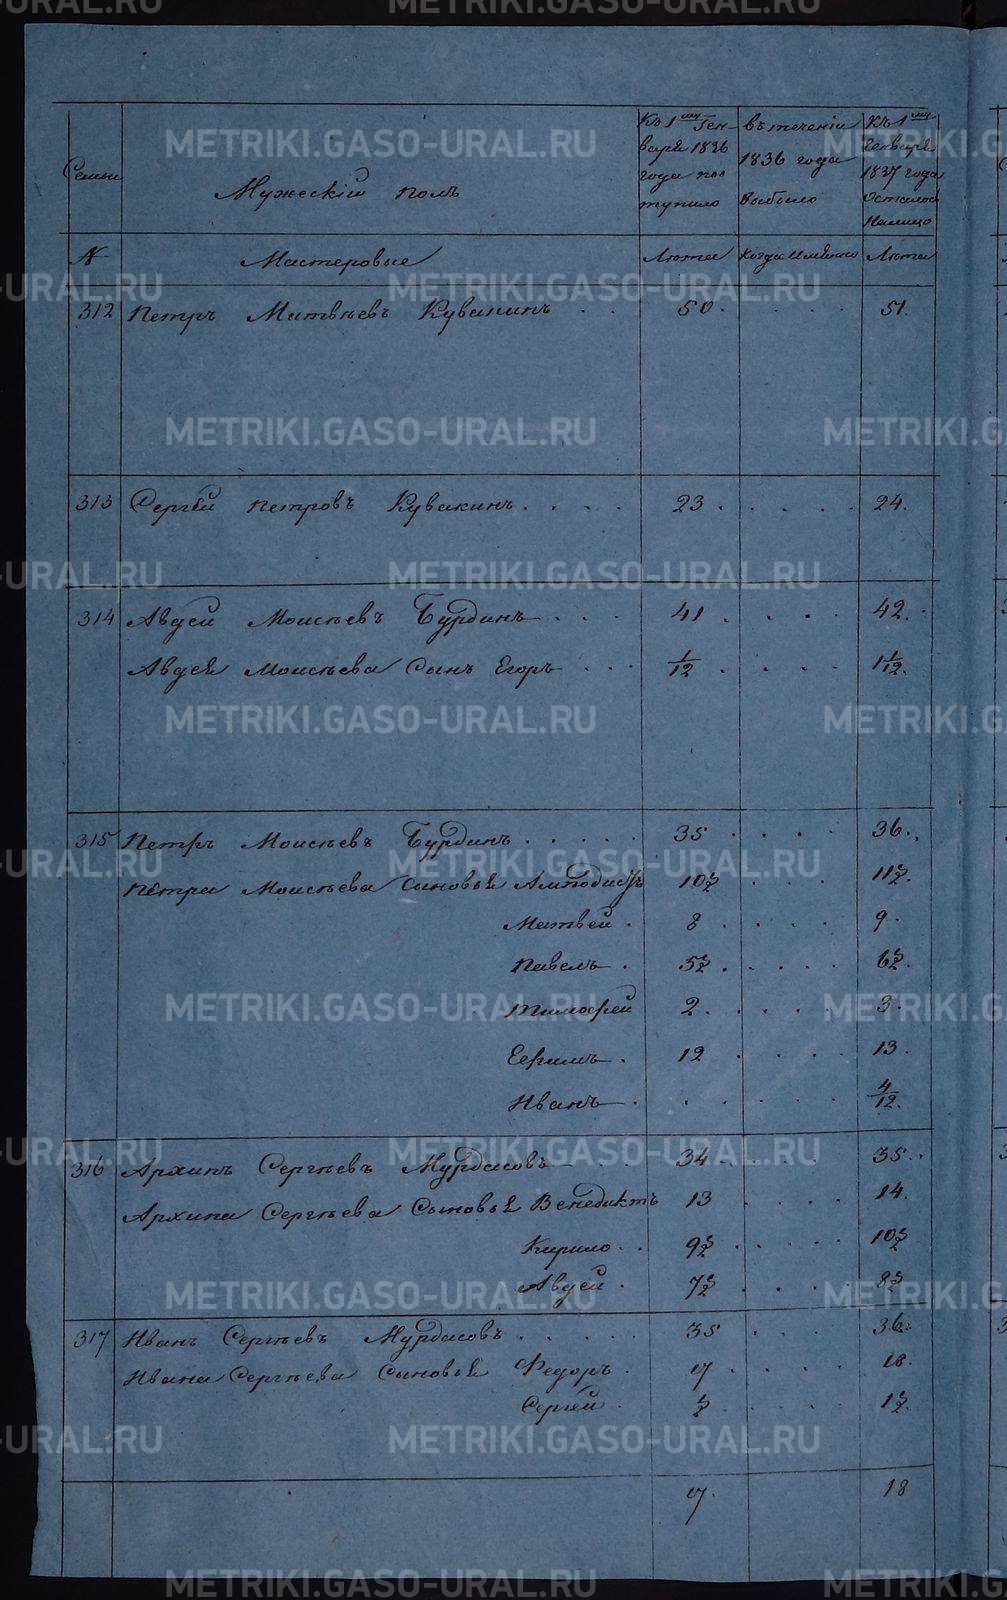 METRIKI.GASO-URAL.RU
Семьи
Мужескій полъ
Къ 1му Генваря 1836 года поступило
Въ теченіи 1836 года выбыло
Къ 1му Генваря 1837 года осталось налицо
№ Мастеровые Люта Когда имянно Люта
312 Петръ Матвѣевъ Кувакинъ . . 50 . . . . 51.
313 Сергѣй Петровъ Кувакинъ . . . . 23 . . . . . 24.
314 Авдей Моисѣевъ Бурдинъ . . . 41 . . . . 42.
Авдея Моисѣева Сынъ Егоръ . . . 1/12 . . . . 1 1/12.
315 Петръ Моисѣевъ Бурдинъ . . . . . 35 . . . . 36.
Петра Моисѣева сыновья Амподистъ 10½ . . . . 11½.
Матвей . 8 . . . . 9.
Павелъ . 5½ . . . . . 6½.
Тимофей 2 . . . . 3.
Ефимъ . 12 . . . . 13.
Иванъ . . . . . . 4/12.
316 Архипъ Сергѣевъ Мурдасовъ . . 34 . . . . 35.
Архипа Сергѣева Сыновья Венедиктъ 13 . . . . 14.
Кирило . . 9½ . . . . . 10½
Авдей . 7½ . . . . 8½
317 Иванъ Сергѣевъ Мурдасовъ . . . . . 35 . . . . 36.
Ивана Сергѣева Сыновья Федоръ . 17 . . . . 18.
Сергѣй . ½ . . . . 1½.
17. 18